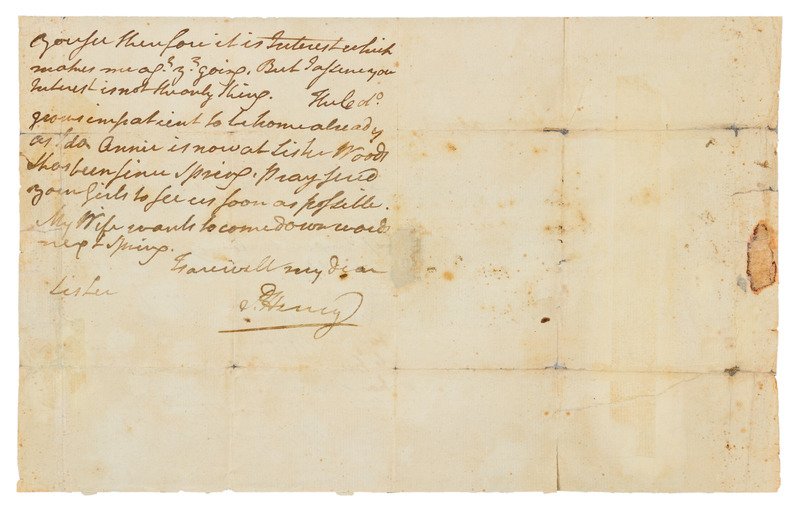 you see therefore it is Interest which
makes me ag.t y.r going. But I assure you
Interest is not the only thing. The Col.o
grows impatient to be home already
as I do Annie is now at Sister Woods
& has been since Spring. Pray send
your Girls to see us soon as possible.
My Wife wants to come downwards
next Spring.
Farewell my dear
Sister
P. Henry